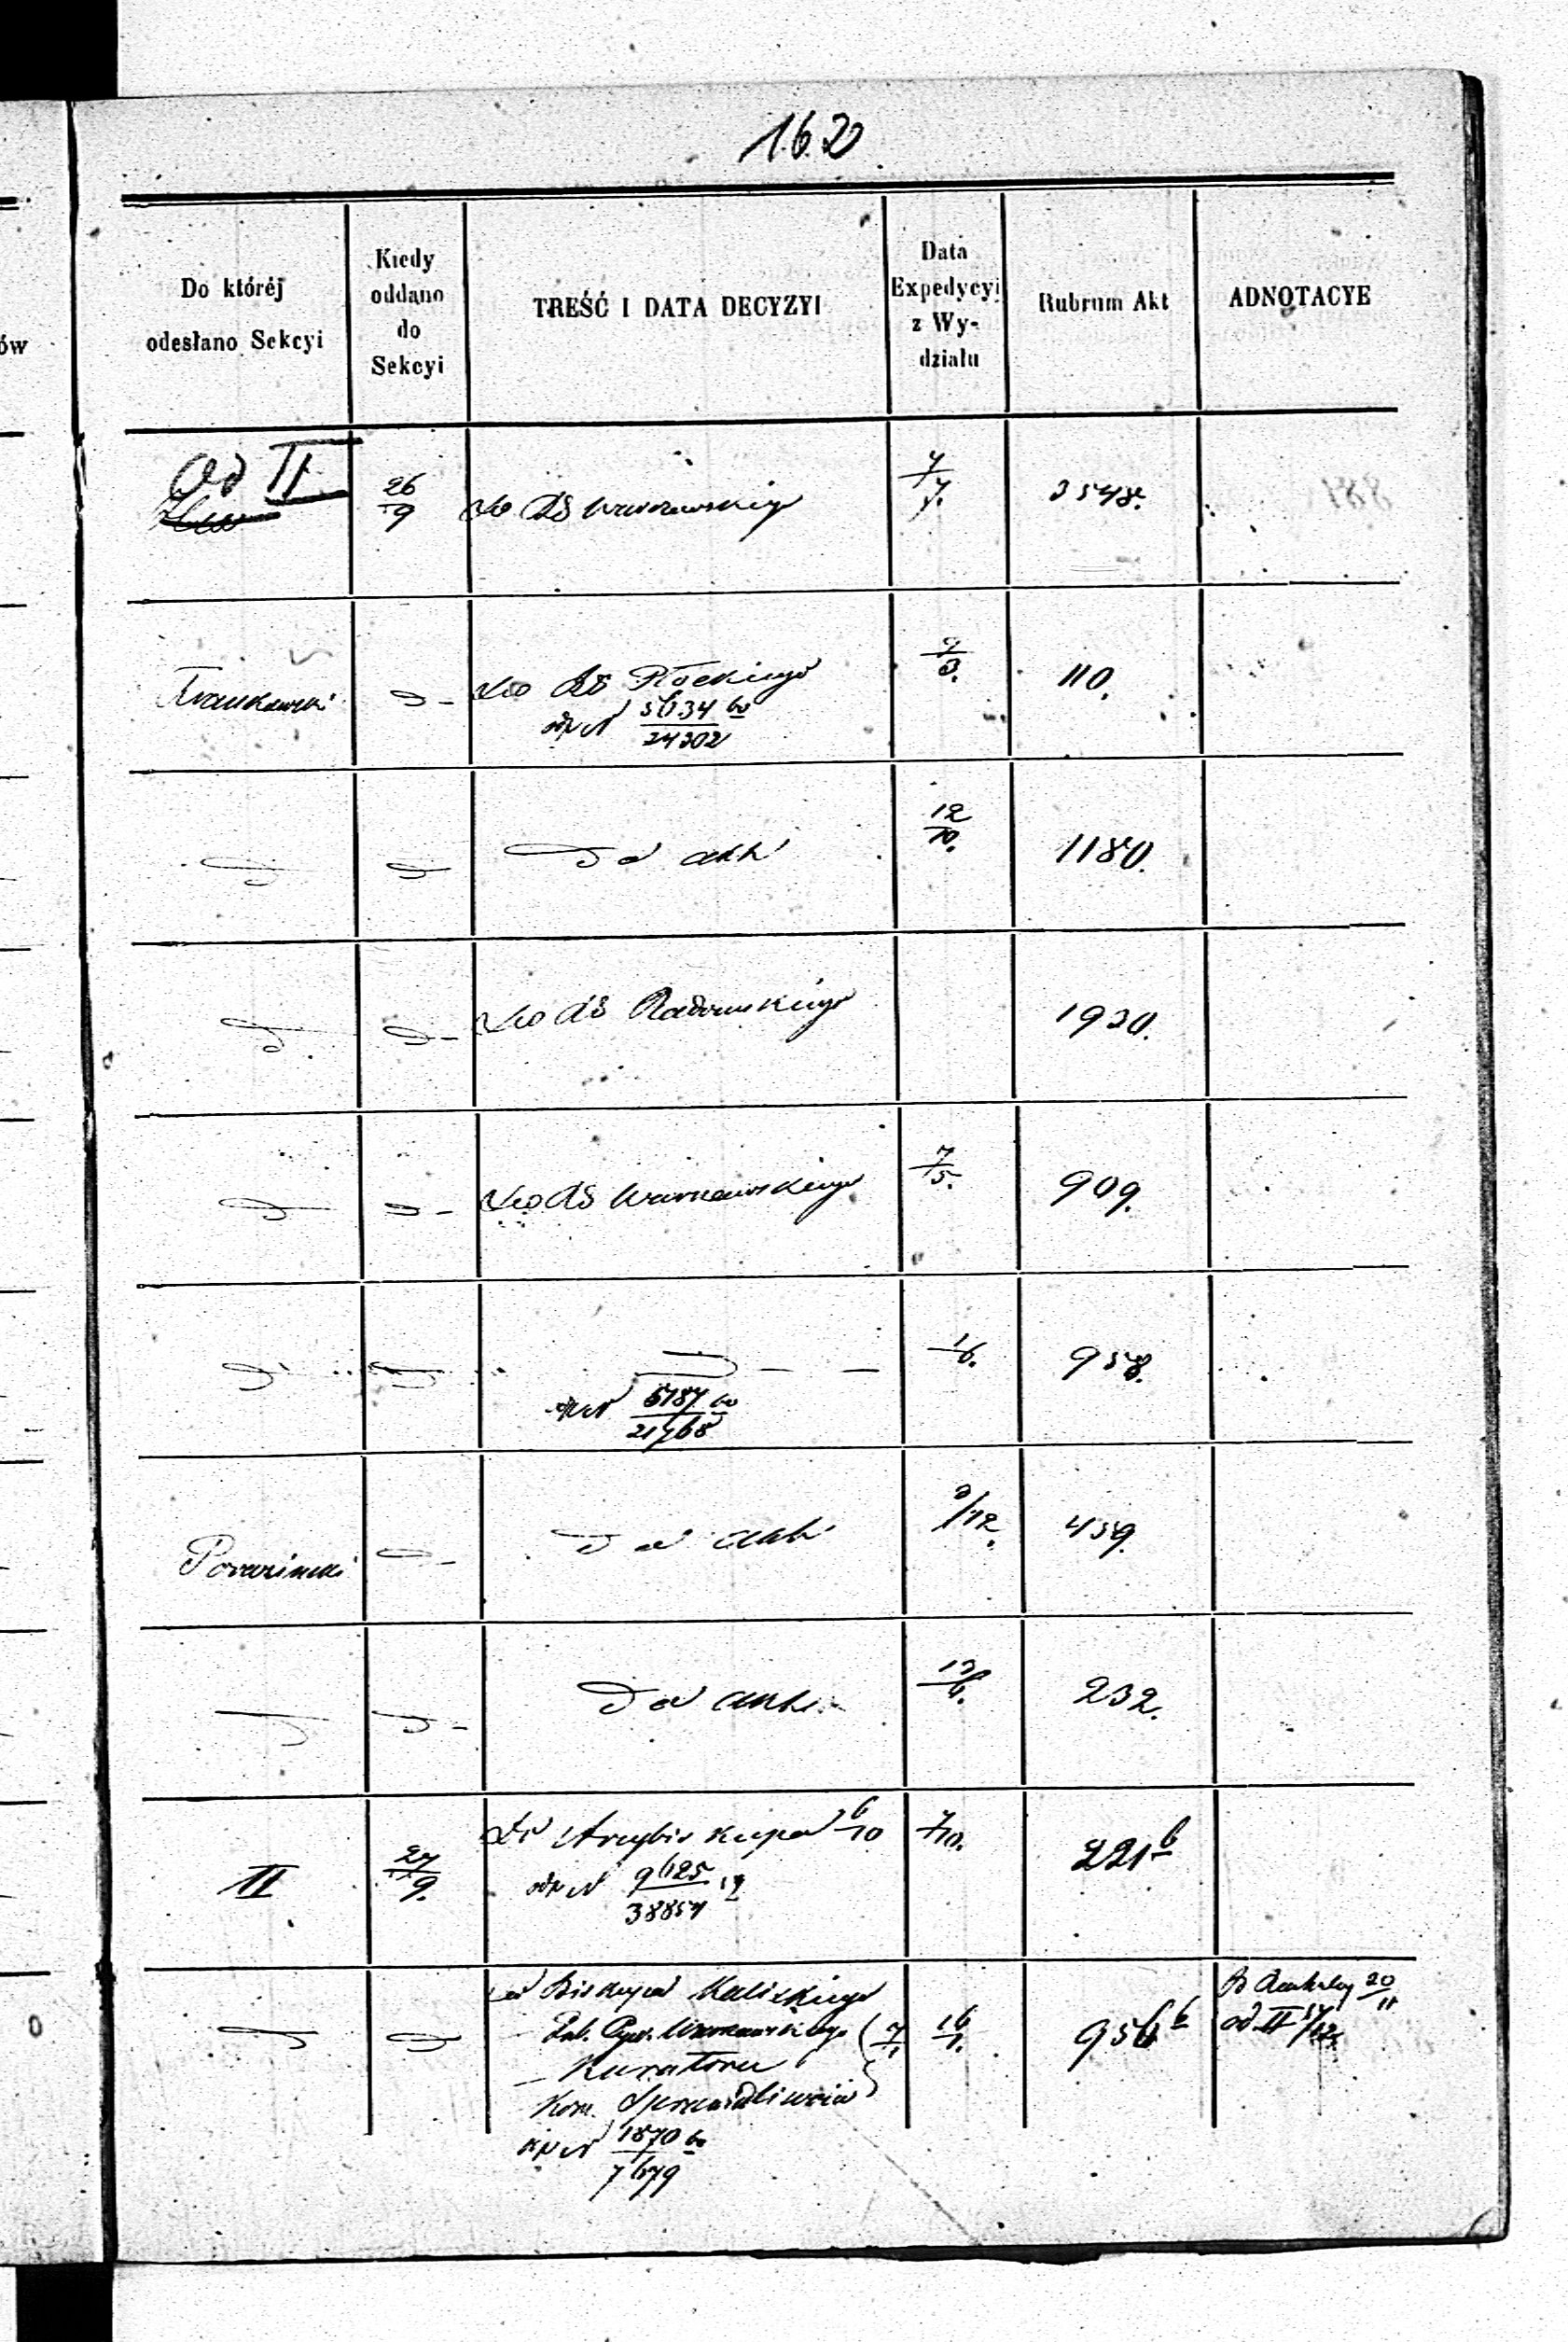 162
Do któréj
odesłano Sekcyi
Kiedy
oddano
do
Sekcyi
TREŚĆ I DATA DECYZYI
Data
Expedycyi
z Wy-
działu
Rubrum Akt
ADNOTACYE
ów
Od II
26/9
do RG Warszawskiego
7/7.
3548.
do RG Płockiego
5634/24302
9/3.
110.
Do akt
12/10.
1180.
do RG Radomskiego
1930.
do RG Warszawskiego
7/5.
909.
1/6.
958.
6187/21768
Do akt
3/12.
459.
Do akt
13/6.
232.
II
27/9.
Do Arcybiskupa 6/10
9625/38854
7/10.
221b
Do Biskupa Kaliskiego
Warszawskiego
Kuratora
Kom. Sprawiedliwości
7/1
1870/7679
16/1.
956b
20/11
od II